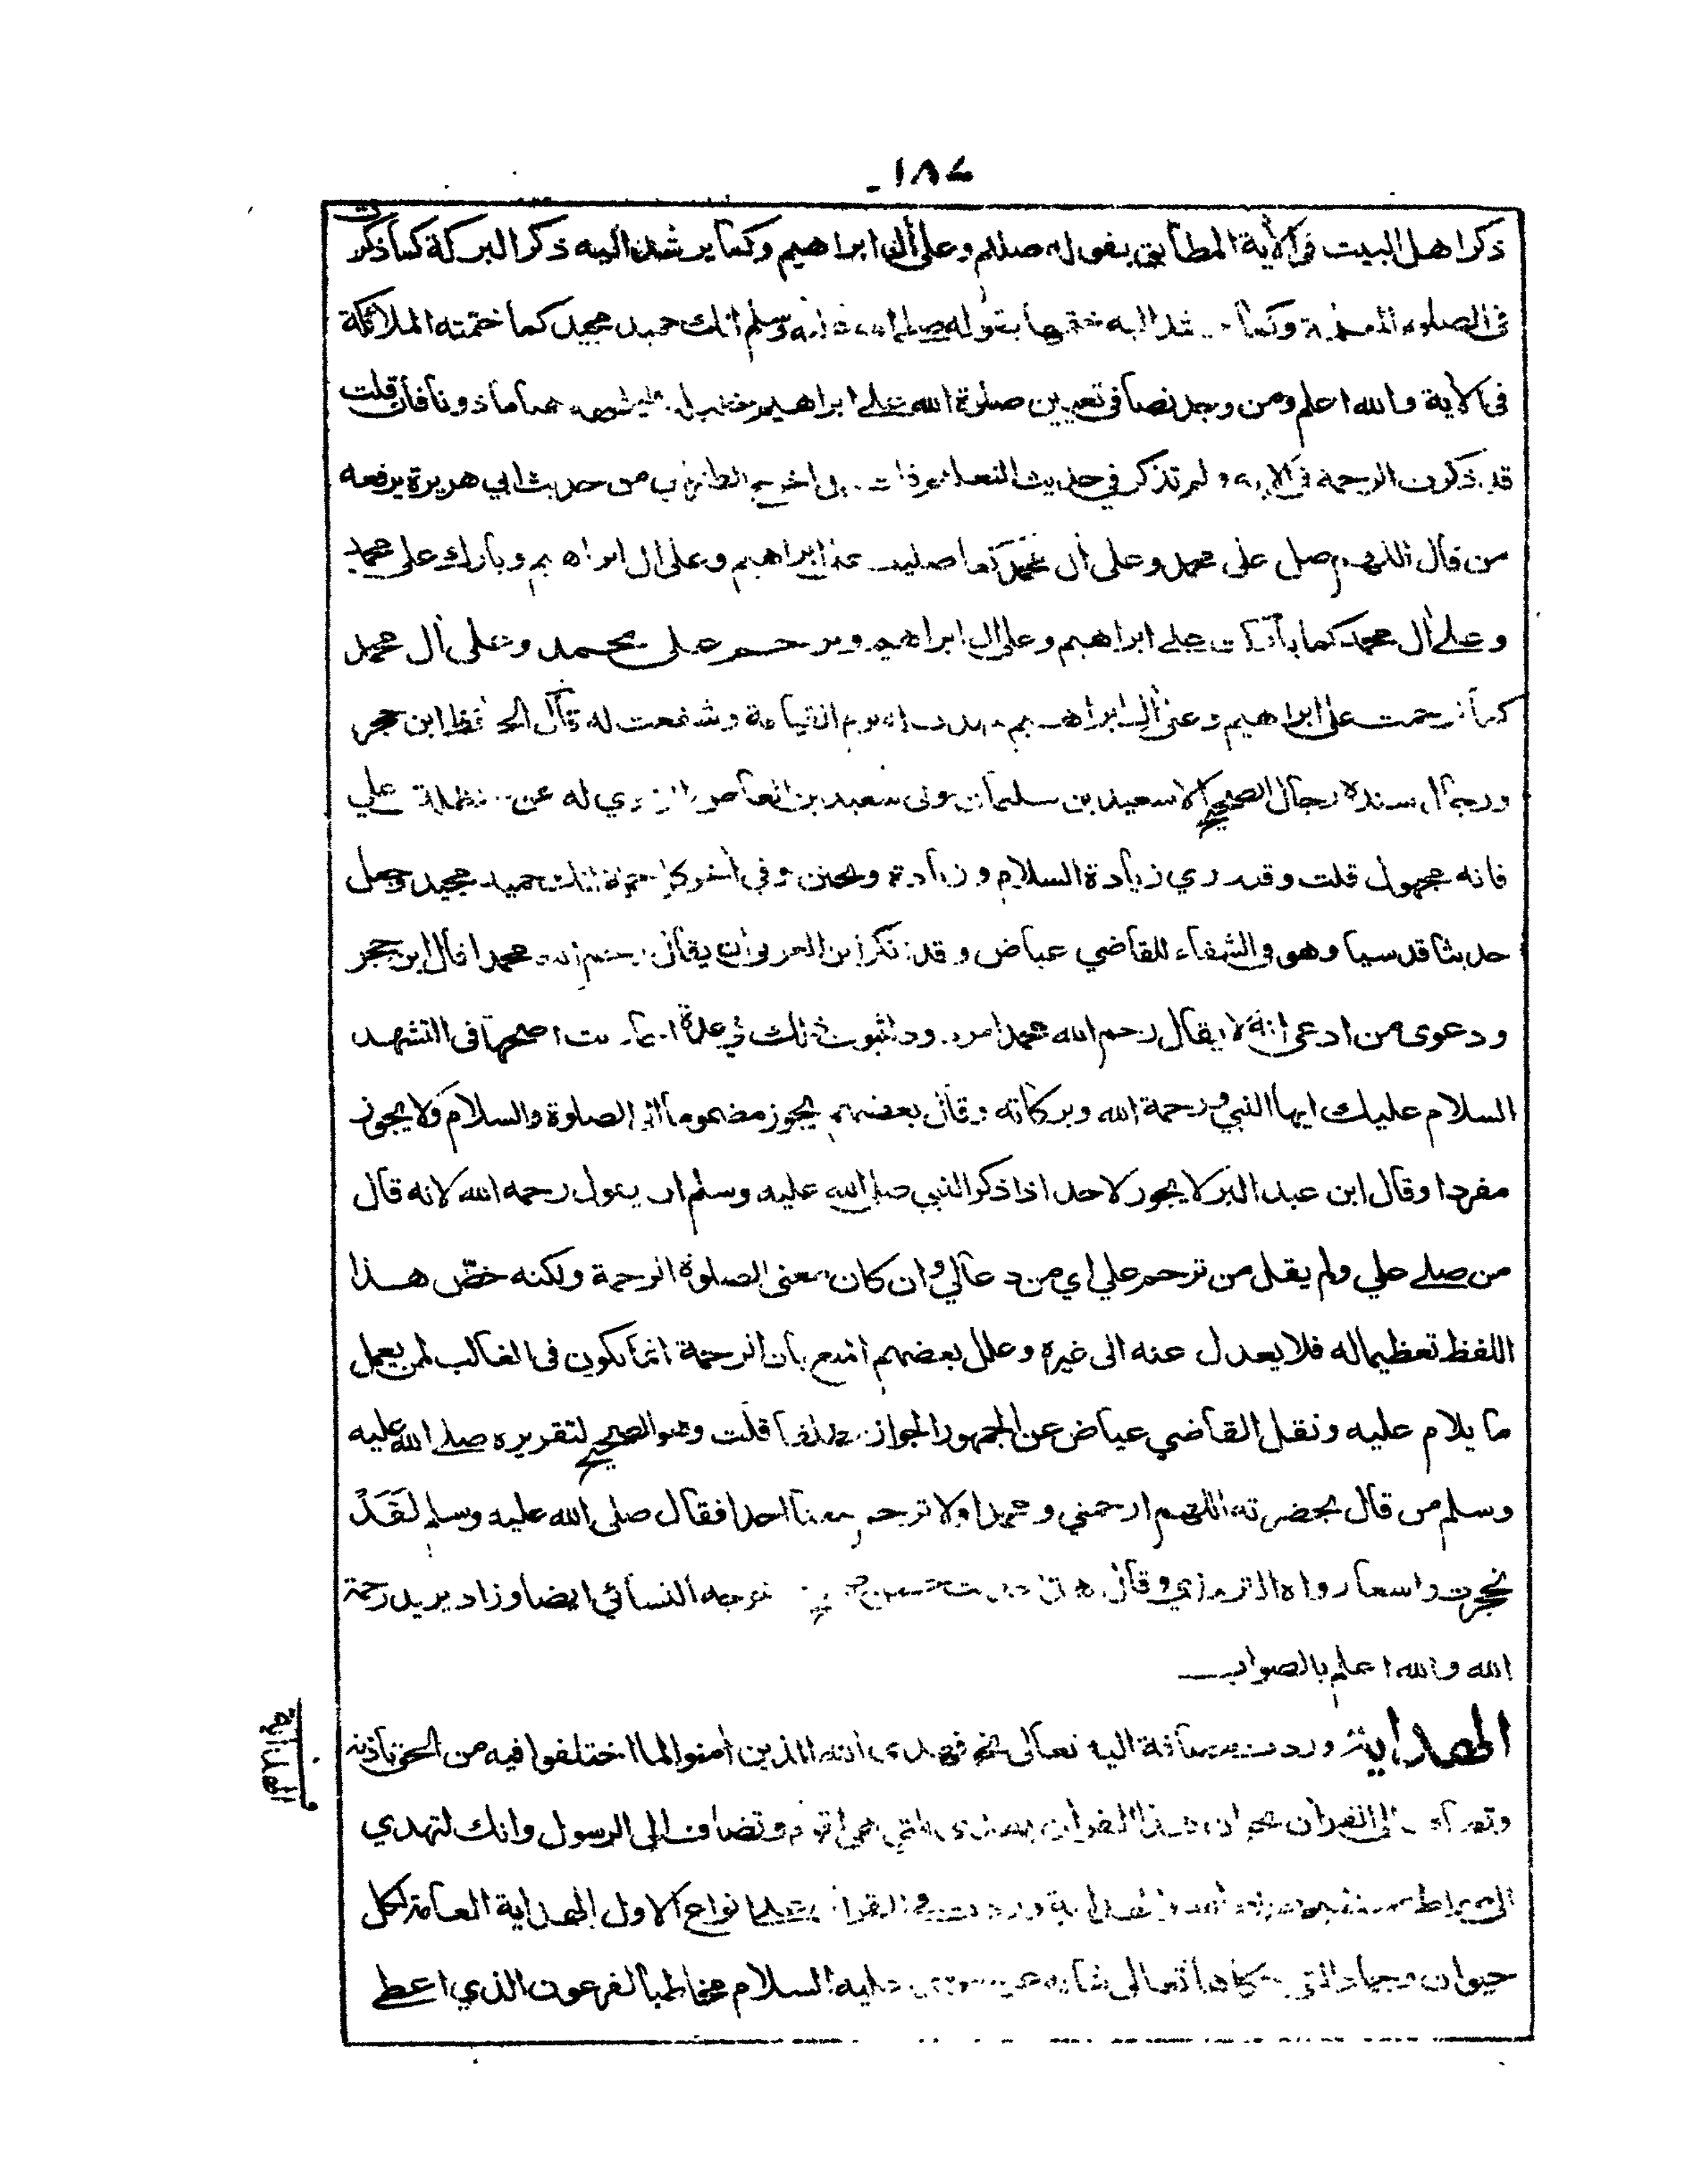 ١٨٧
ذكر اهل البيت فى الأية المطابق بقوله صللم وعلى أل ابراهيم وكما يرشد اليه ذكر البركة كما ذكرت
فى الصلوة وكما اليه ختمها بقوله صلى الله عليه وسلم انك حميد مجيد كما ختمته الملائكة
فى الأية والله اعلم ومن وجد نصا فى تعيين صلوة الله على ابراهيم فأن قلت
قد ذكرت الرحمة فى الأية ولم تذكر في حديث اخرج من حديث ابي هريرة يرفعه
من قال اللهم صل على محمد وعلى أل محمد كما صليت على ابراهيم وعلى ال ابراهيم وبارك على محمد
وعلى أل محمد كما باركت على ابراهيم وعلى ال ابراهيم وترحم على محمد وعلى أل محمد
كما ترحمت على ابراهيم وعلى أل ابراهيم يوم القيامة وشفعت له قال الحافظ ابن حجر
ورجال سنده رجال الصحيح الا سعيد بن سليمان مولى سعيد بن العاص الراوي له عن حنظلة علي
فانه مجهول قلت وقد روي زيادة السلام وزيادة وتحنن وفي أخر كل مرة انك حميد مجيد وجعل
حديثا قدسيا وهو في الشفاء للقاضي عياض وقد انكر ابن العربى ان يقال محمدا قال ابن حجر
ودعوى من ادعى انه لا يقال رحم الله محمدا مردودة لثبوت ذلك في عدة احاديث اصحها فى التشهد
السلام عليك ايها النبي ورحمة الله وبركاته وقال بعضهم يجوز مضموما الى الصلوة والسلام ولا يجوز
مفردا وقال ابن عبد البر لا يجوز لاحد اذا ذكر النبي صلى الله عليه وسلم ان يقول رحمه الله لانه قال
من صلى علي ولم يقل من ترحم علي اي من دعالي وان كان معنى الصلوة الرحمة ولكنه خصّ هذا
اللفظ تعظيما له فلا يعدل عنه الى غيره وعلل بعضهم المنع بان الرحمة انما تكون فى الغالب لمن يعمل
ما يلام عليه ونقل القاضي عياض عن الجمهور الجواز مطلقا قلت وهو الصحيح لتقريره صلى الله عليه
وسلم من قال بحضرته اللهم ارحمني ومحمدا ولا ترحم معنا احدا فقال صلى الله عليه وسلم لَقَدْ
تحجرت واسعا رواه الترمذي وقال هذا حديث حسن صحيح النسائي ايضا وزاد يريد رحمة
الله والله اعلم بالصواب
الهداية وردت مضافة اليه تعالى نحو فهدى الله الذين أمنوا لما اختلفوا فيه من الحق باذنه
الهداية
الى القرأن نحو ان هذا القرأن يهدى للتي هي اقوم وتضاف الى الرسول وانك لتهدي
الى صراط مستقيم وردت في القرأن على انواع الاول الهداية العامة لكل
حيوان وجماد التي تعالى عن موسى عليه السلام مخاطبا لفرعون الذي اعطى